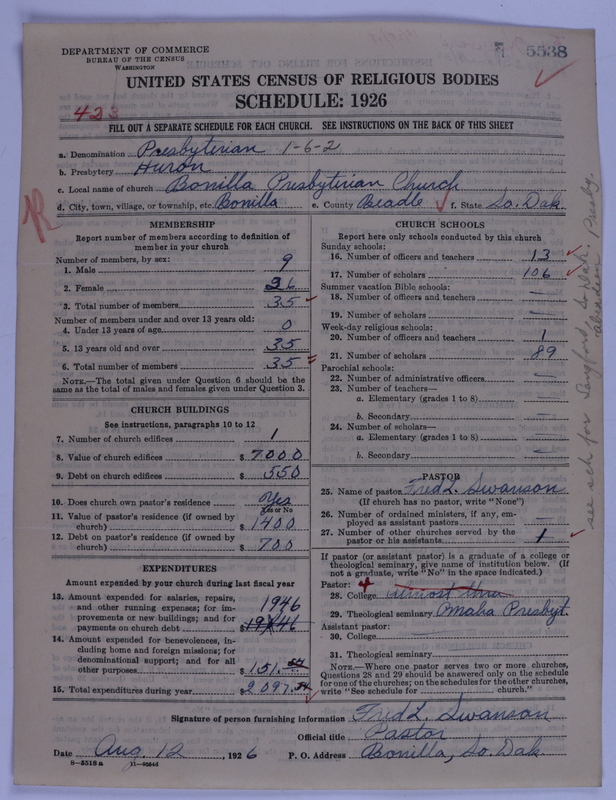 DEPARTMENT OF COMMERCE
BUREAU OF THE CENSUS
WASHINGTON
5538
UNITED STATES CENSUS OF RELIGIOUS BODIES
SCHEDULE: 1926
423
FILL OUT A SEPARATE SCHEDULE FOR EACH CHURCH. SEE INSTRUCTIONS ON THE BACK OF THIS SHEET
a. Denomination Presbyterian 1-6-2
b. Presbytery Huron
c. Local name of church Bonilla Presbyterian Church
d. City, town, village, or township, etc. Bonilla e. County Beadle f. State So. Dak.
MEMBERSHIP
Report number of members according to definition of member in your church
Number of members, by sex:
1. Male 9
2. Female 26
3. Total number of members 35
Number of members under and over 13 years old:
4. Under 13 years of age 0
5. 13 years old and over 35
6. Total number of members 35
NOTE.—The total given under Question 6 should be the same as the total of males and females given under Question 3.
CHURCH BUILDINGS
See instructions, paragraphs 10 to 12
7. Number of church edifices 1
8. Value of church edifices $7000
9. Debt on church edifices $550
10. Does church own pastor's residence Yes
Yes or No
11. Value of pastor's residence (if owned by church) $1400
12. Debt on pastor's residence (if owned by church) $700
EXPENDITURES
Amount expended by your church during last fiscal year
13. Amount expended for salaries, repairs, and other running expenses; for improvements or new buildings; and for payments on church debt 1946
14. Amount expended for benevolences, including home and foreign missions; for denominational support; and for all other purposes $151.
15. Total expenditures during year $2097.
CHURCH SCHOOLS
Report here only schools conducted by this church
Sunday schools:
16. Number of officers and teachers 13
17. Number of scholars 106
Summer vacation Bible schools:
18. Number of officers and teachers —
19. Number of scholars —
Week-day religious schools:
20. Number of officers and teachers 1
21. Number of scholars 89
Parochial schools:
22. Number of administrative officers —
23. Number of teachers—
a. Elementary (grades 1 to 8) —
b. Secondary —
24. Number of scholars—
a. Elementary (grades 1 to 8) —
b. Secondary —
PASTOR
25. Name of pastor Fred L. Swanson
(If church has no pastor, write "None")
26. Number of ordained ministers, if any, employed as assistant pastors —
27. Number of other churches served by the pastor or his assistants 1
If pastor (or assistant pastor) is a graduate of a college or theological seminary, give name of institution below. (If not a graduate, write "No" in the space indicated.)
Pastor:
28. College almost thru
29. Theological seminary Omaha Presbyt.
Assistant pastor:
30. College
31. Theological seminary
NOTE.—Where one pastor serves two or more churches, Questions 28 and 29 should be answered only on the schedule for one of the churches; on the schedules for the other churches, write "See schedule for ______ church."
see sch for Longford, So. Dak.
Aberdeen Presby.
Signature of person furnishing information Fred L. Swanson
Official title Pastor
Date Aug. 12, 1926 P. O. Address Bonilla, So. Dak.
8—5518a